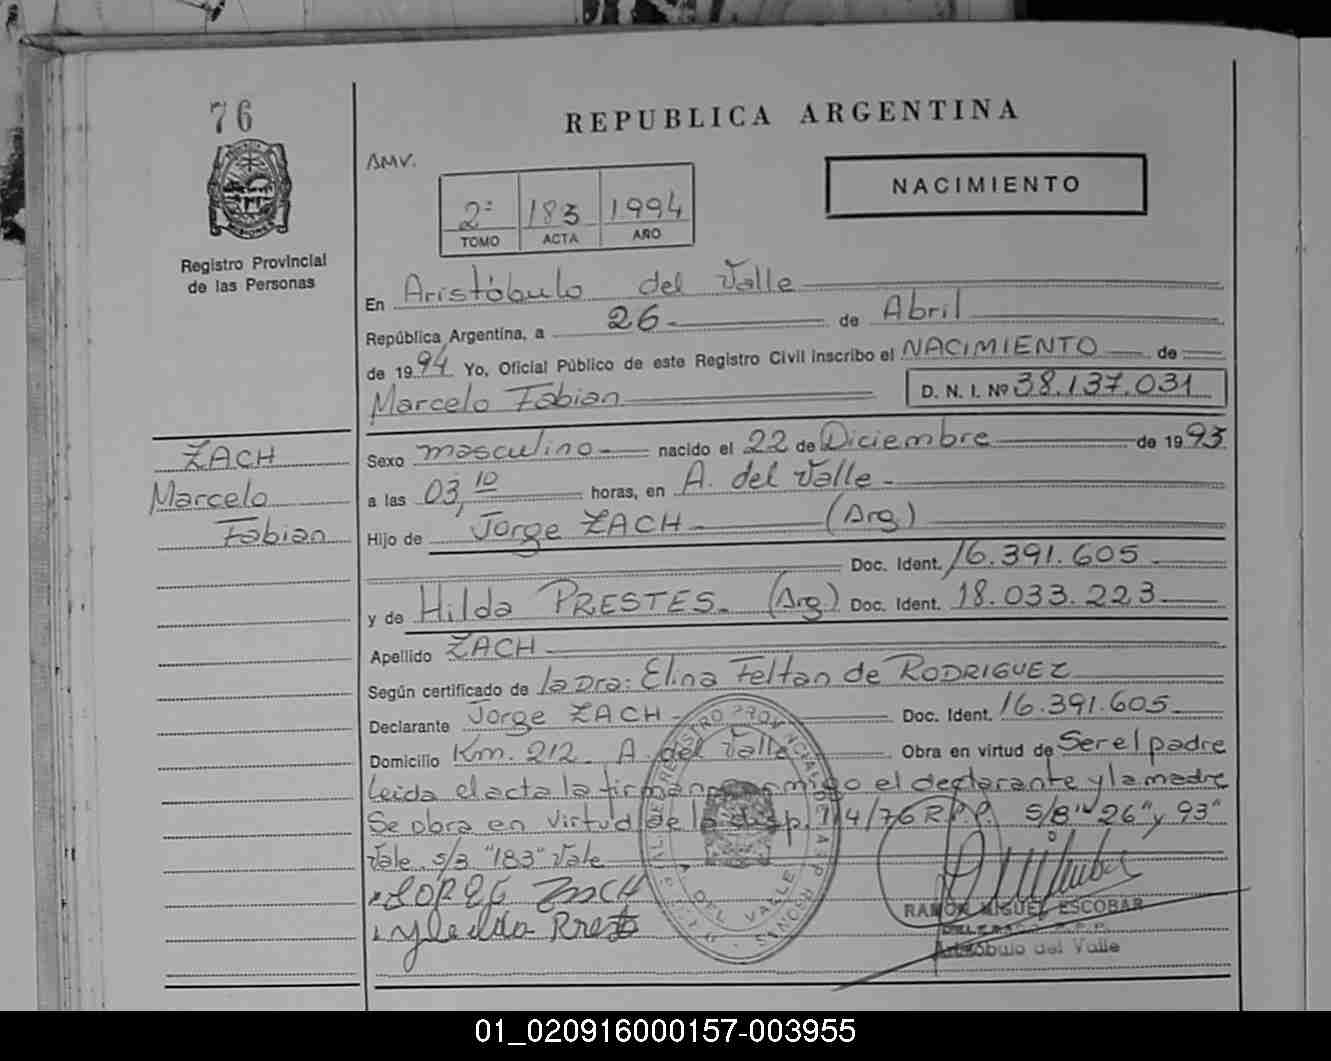 76
REPUBLICA ARGENTINA
AMV.
NACIMIENTO
2º 183 1994
TOMO ACTA AÑO
Registro Provincial
de las Personas
En Aristóbulo del Valle
República Argentina, a 26 de Abril
de 1994 Yo, Oficial Público de este Registro Civil inscribo el NACIMIENTO de
Marcelo Fabian D. N. I. Nº 38.137.031
ZACH
Marcelo
Fabian
Sexo masculino nacido el 22 de Diciembre de 1993
a las 03,10 horas, en A. del Valle
Hijo de Jorge ZACH (Arg)
Doc. Ident. 16.391.605
y de Hilda PRESTES (Arg) Doc. Ident. 18.033.223
Apellido ZACH
Según certificado de la Dra: Elina Feltan de RODRIGUEZ
Declarante Jorge ZACH Doc. Ident. 16.391.605
Domicilio Km. 212 A. del Valle Obra en virtud de Ser el padre
Leida el acta la firman conmigo el declarante y la madre
Se obra en virtud de la disp. 114/76 R.P.P. S/B "26" y 93"
Vale s/B "183" Vale
JORGE ZACH
REGISTRO PROVINCIAL DE LAS PERSONAS
DEL VALLE
MISIONES
RAMON MIGUEL ESCOBAR
DELEGADO R.P.P.
Aristóbulo del Valle
01_020916000157-003955